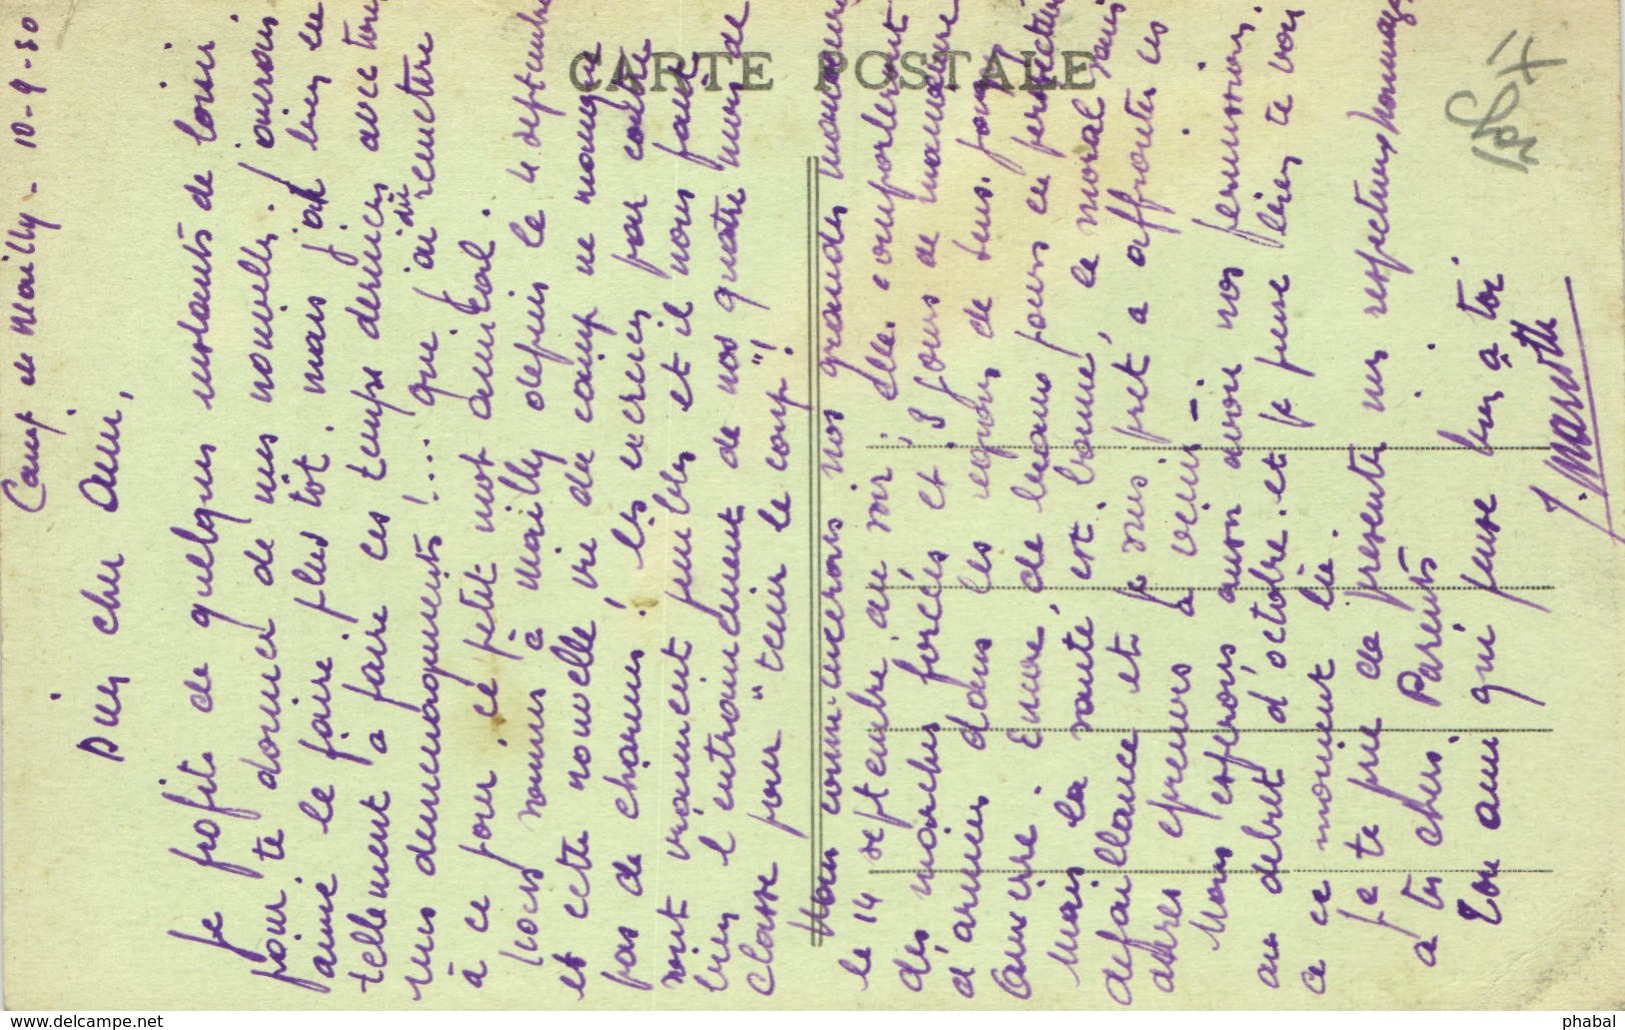 Camp de Mailly - 10-9-30
Bien cher Ami,
Je profite de quelques instants de loisir
pour te donner de mes nouvelles. J'aurais
aimé le faire plus tôt, mais j'ai bien eu
tellement à faire ces temps derniers avec tous
mes demenagements !... que j'ai dû remettre
à ce jour, ce petit mot amical.
Nous sommes à Mailly depuis le 4 septembre
et cette nouvelle vie de camp ne manque
pas de charmes ! les exercices par contre
sont vraiment penibles et il nous faut
bien l'entrainement de nos quatre mois de
classe pour "tenir le coup" !
Nous commencerons nos grandes manoeuvres
le 14 septembre au soir ; elles comporteront
des marches forcées et 3 jours de manoeuvre
d'armées dans les regions de Sens, Joigny
Auxerre. Encore, de beaux jours en perspective
Mais la santé est bonne, le moral sans
defaillance et je suis prêt à affronter ces
apres epreuves à venir -
Nous esperons aussi avoir nos permissions
au debut d'octobre et je pense bien te voir
à ce moment là.
Je te prie de presenter mes respectueux hommages
à tes chers Parents
Ton ami qui pense bien à toi
J. Marotte
CARTE POSTALE
www.delcampe.net
phabal